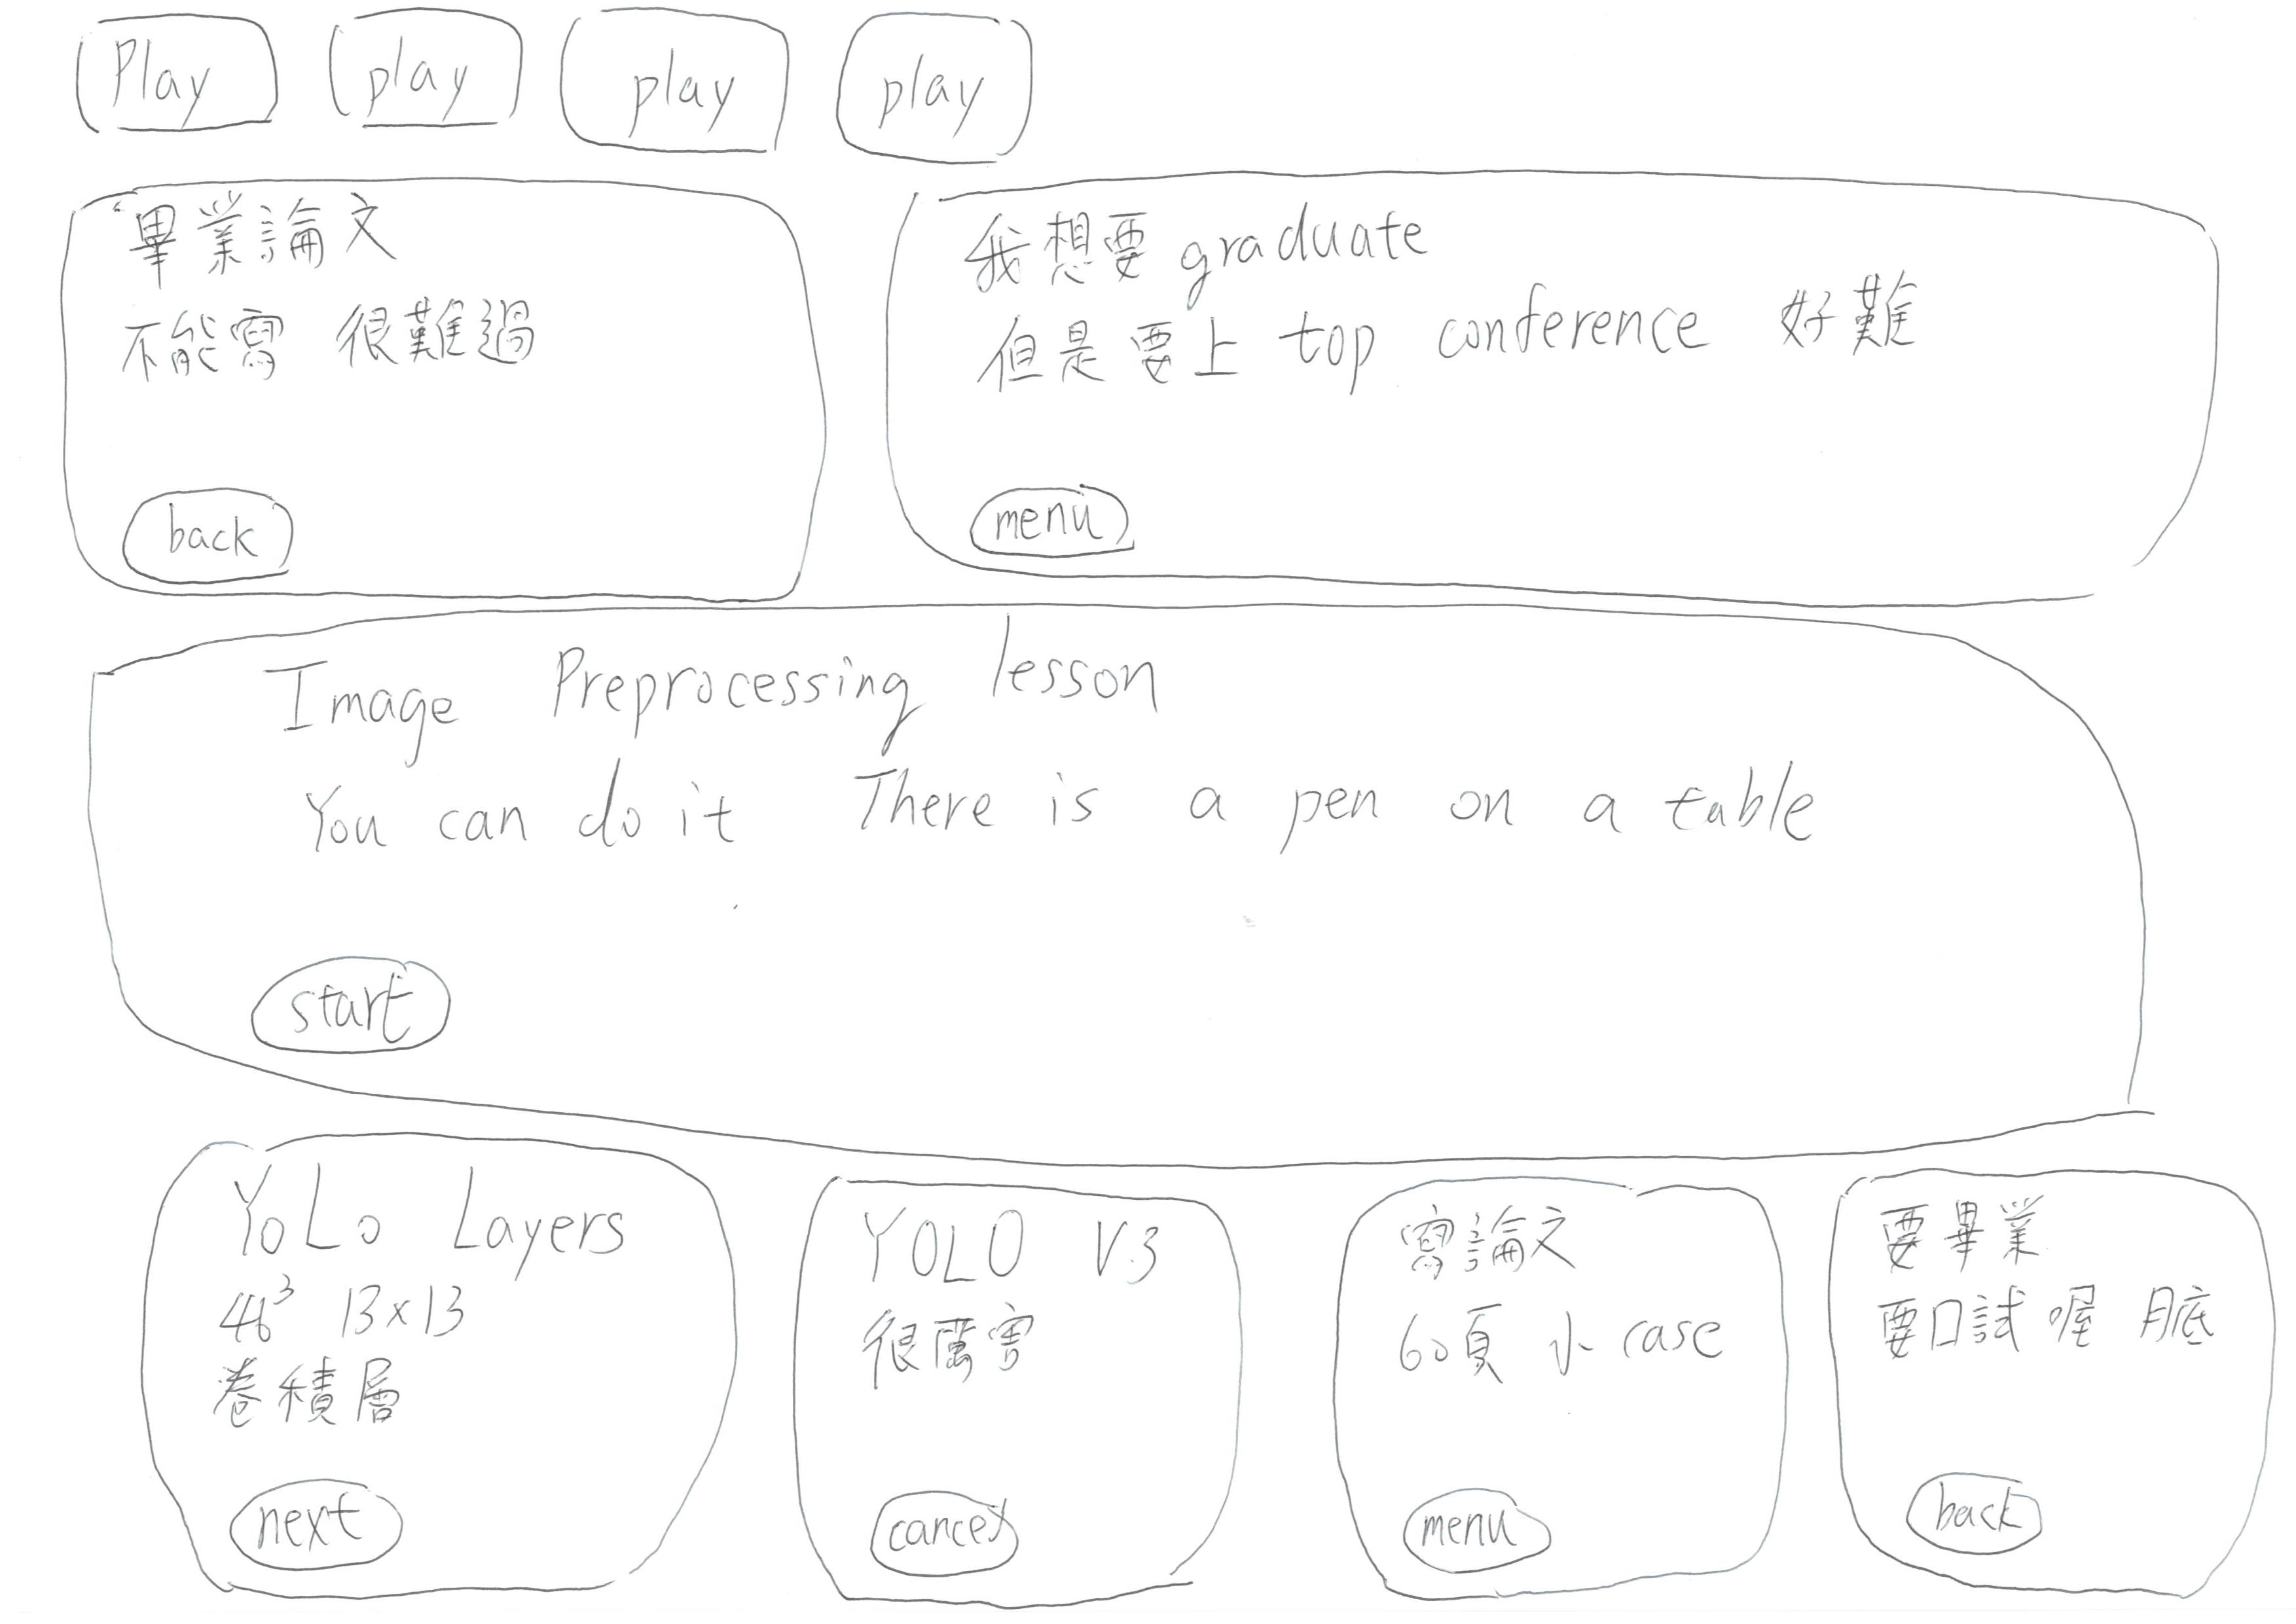 Play play play play
畢業論文
不能寫 很難過
back
我想要 graduate
但是要上 top conference 好難
menu
Image Preprocessing lesson
You can do it There is a pen on a table
start
YoLo Layers
13x13
卷積層
next
YOLO V3
很厲害
cancel
寫論文
60頁 小 case
menu
要畢業
要口試喔 月底
back